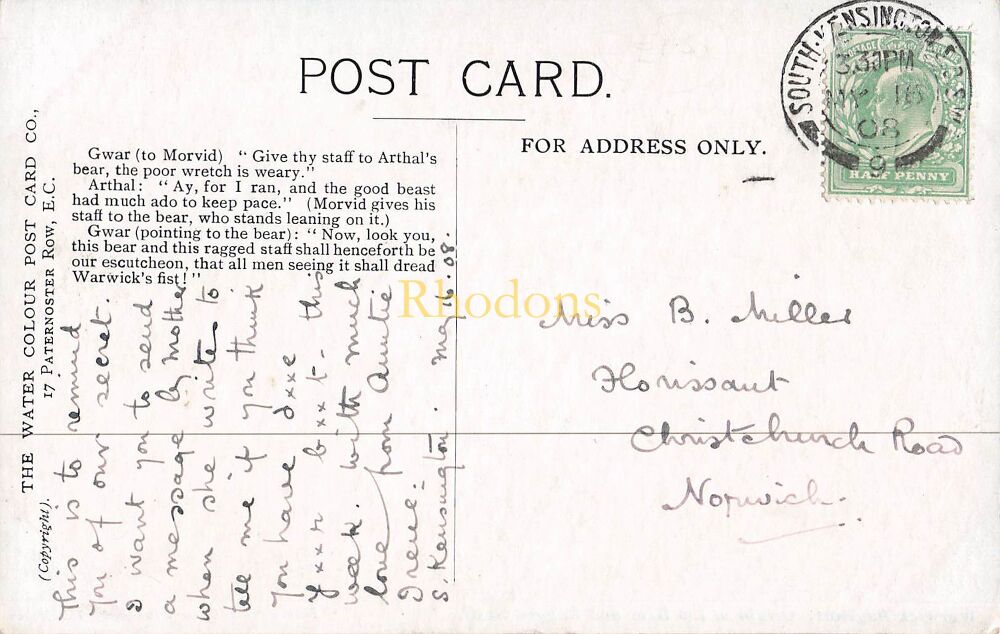 POST CARD.
FOR ADDRESS ONLY.
SOUTH KENSINGTON
3.30PM
MY 16
08
9
POSTAGE
HALF PENNY
THE WATER COLOUR POST CARD CO.,
17 PATERNOSTER ROW, E.C.
(Copyright).
Gwar (to Morvid) "Give thy staff to Arthal's
bear, the poor wretch is weary."
Arthal: "Ay, for I ran, and the good beast
had much ado to keep pace." (Morvid gives his
staff to the bear, who stands leaning on it.)
Gwar (pointing to the bear): "Now, look you,
this bear and this ragged staff shall henceforth be
our escutcheon, that all men seeing it shall dread
Warwick's fist!"
This is to remind
you of our secret.
I want you to send
a message by mother
when she writes to
tell me if you think
you have dxxe
yxxr bxxt - this
week. with much
love from Auntie
Irene.
S. Kensington. May 16.08.
Rhodons
Miss B. Miller
Florissant
Christchurch Road
Norwich.